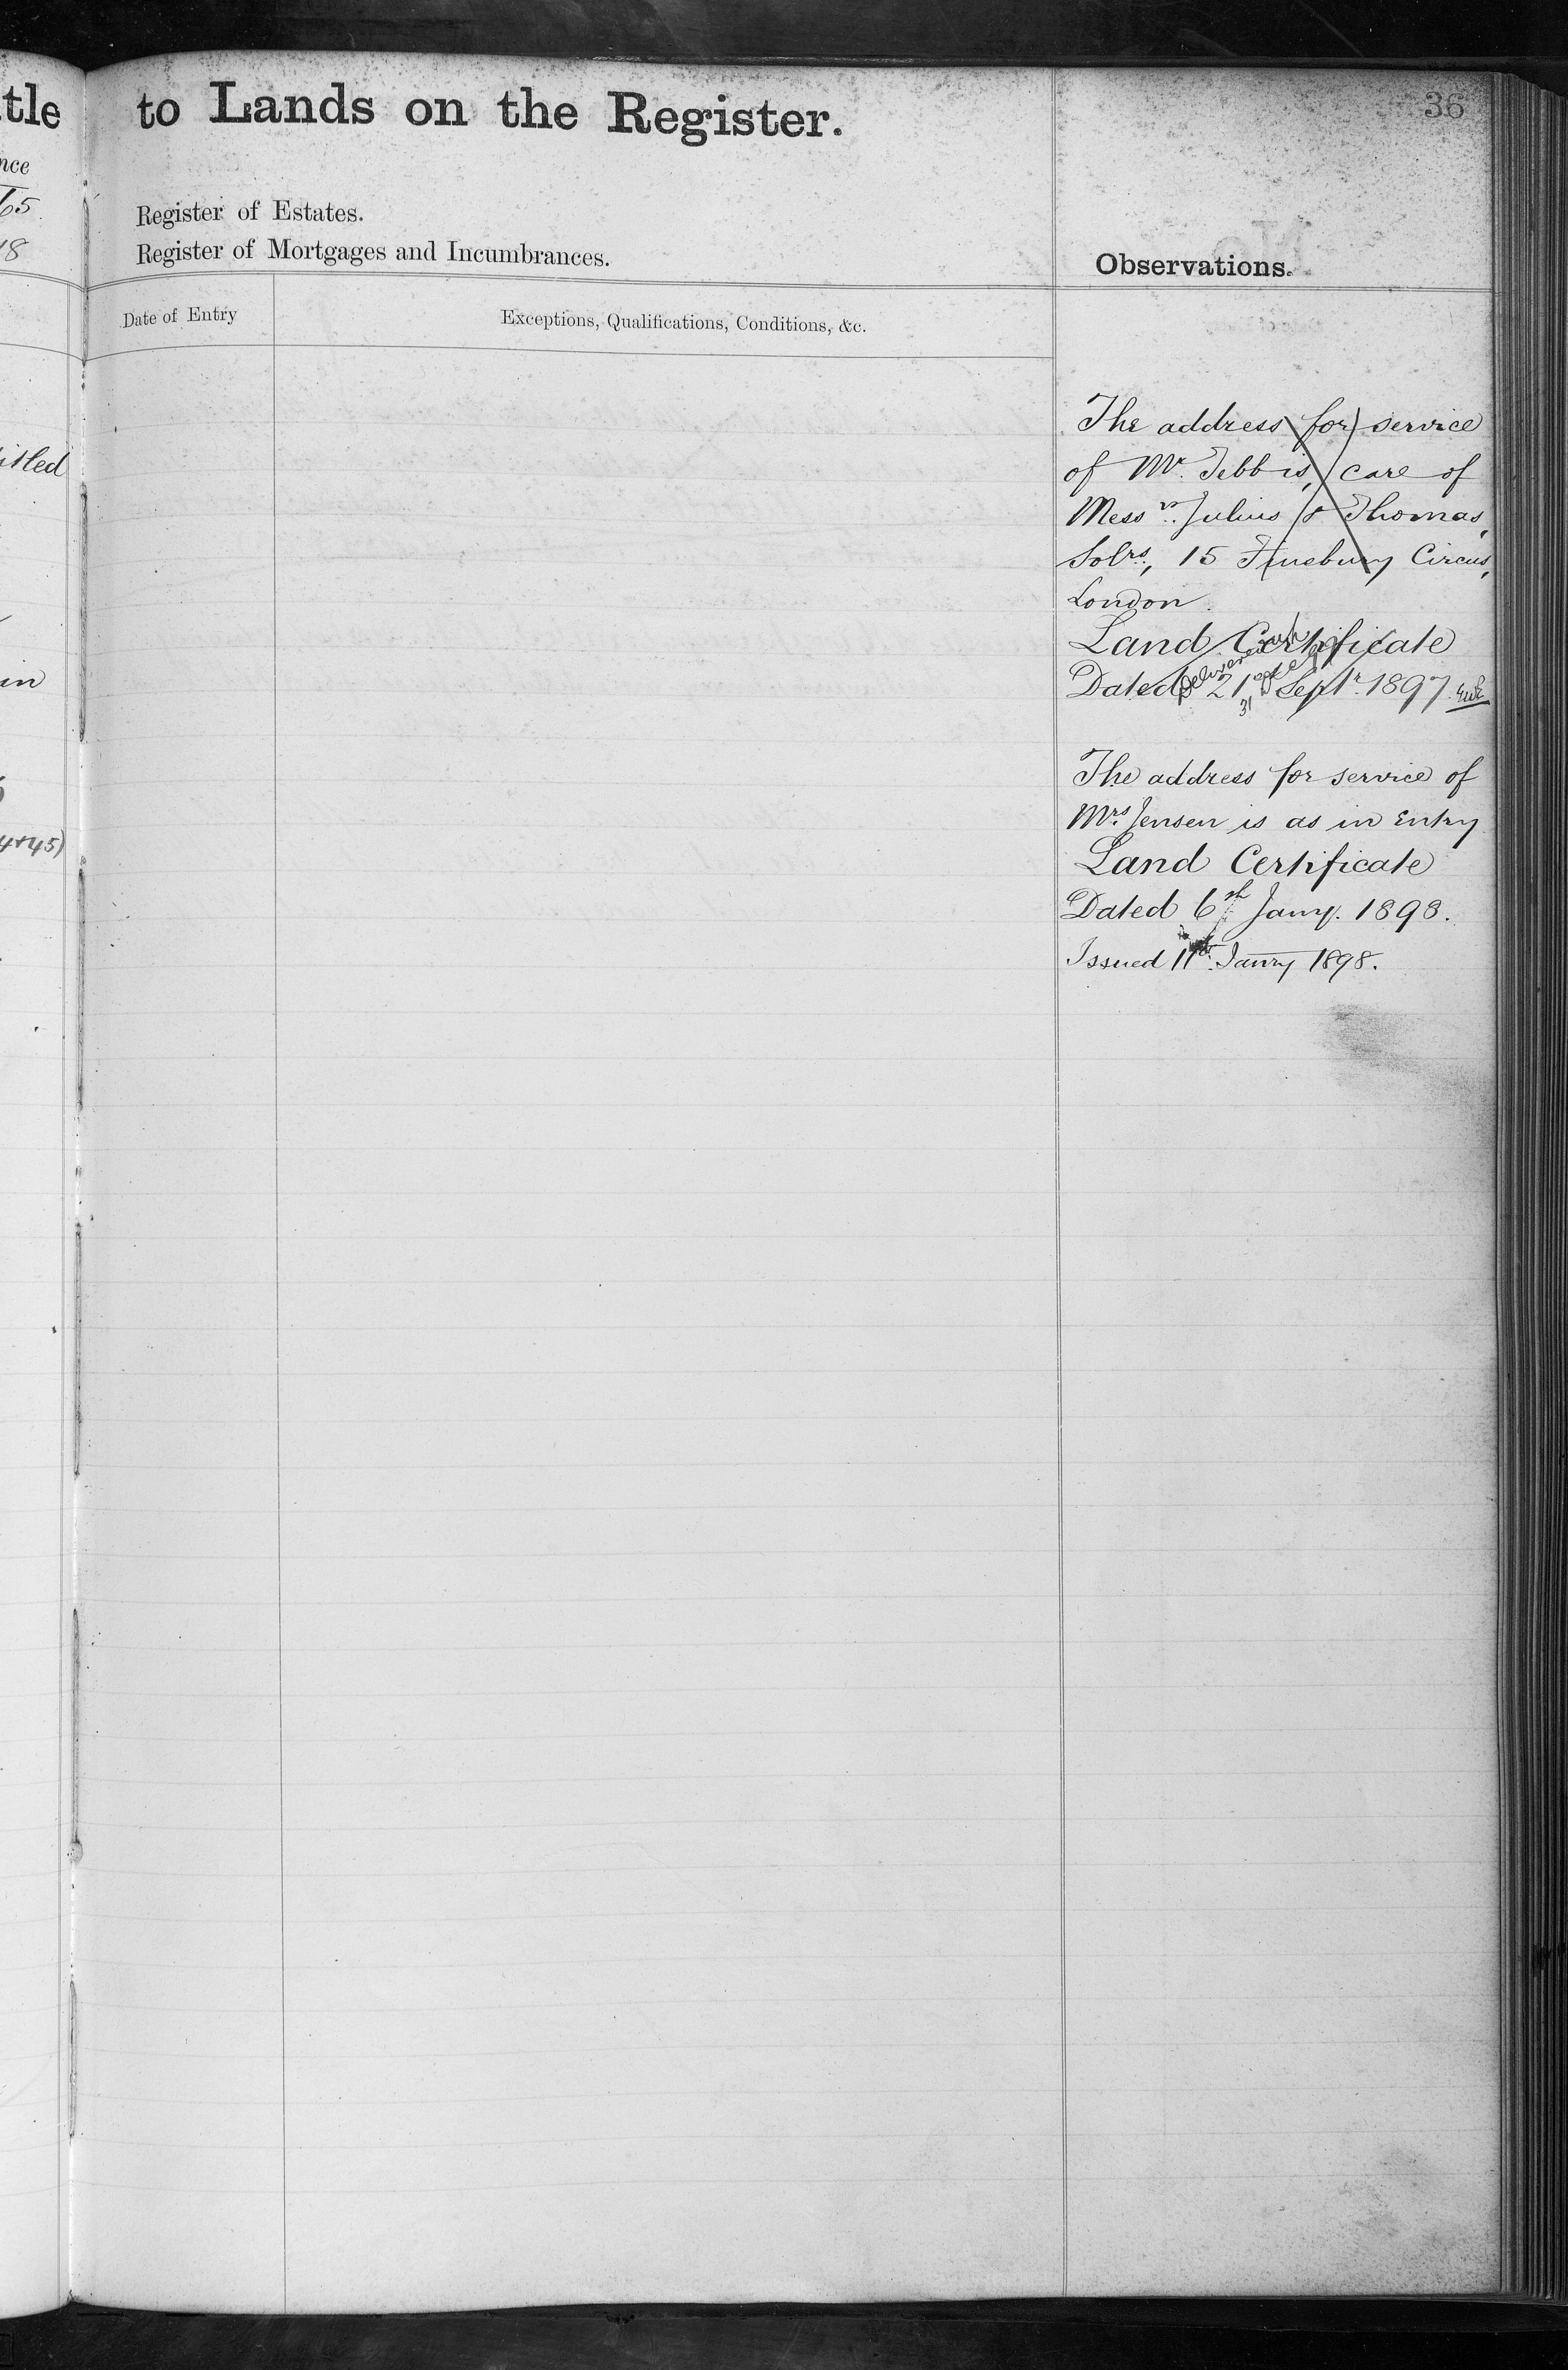 tle
nce
65
18
itled
in
4+45)
to Lands on the Register.
36
Register of Estates.
Register of Mortgages and Incumbrances.
Observations.
Date of Entry
Exceptions, Qualifications, Conditions, &c.
The address for service
of Mr. Tebb is, care of
Messrs. Julius & Thomas,
Solrs., 15 Finsbury Circus,
London.
Land Certificate
Delivered up
Dated 21st Septr. 1897.
31
The address for service of
Mrs. Jensen is as in Entry
Land Certificate
Dated 6th Jany. 1898.
Issued 11th. Janry 1898.